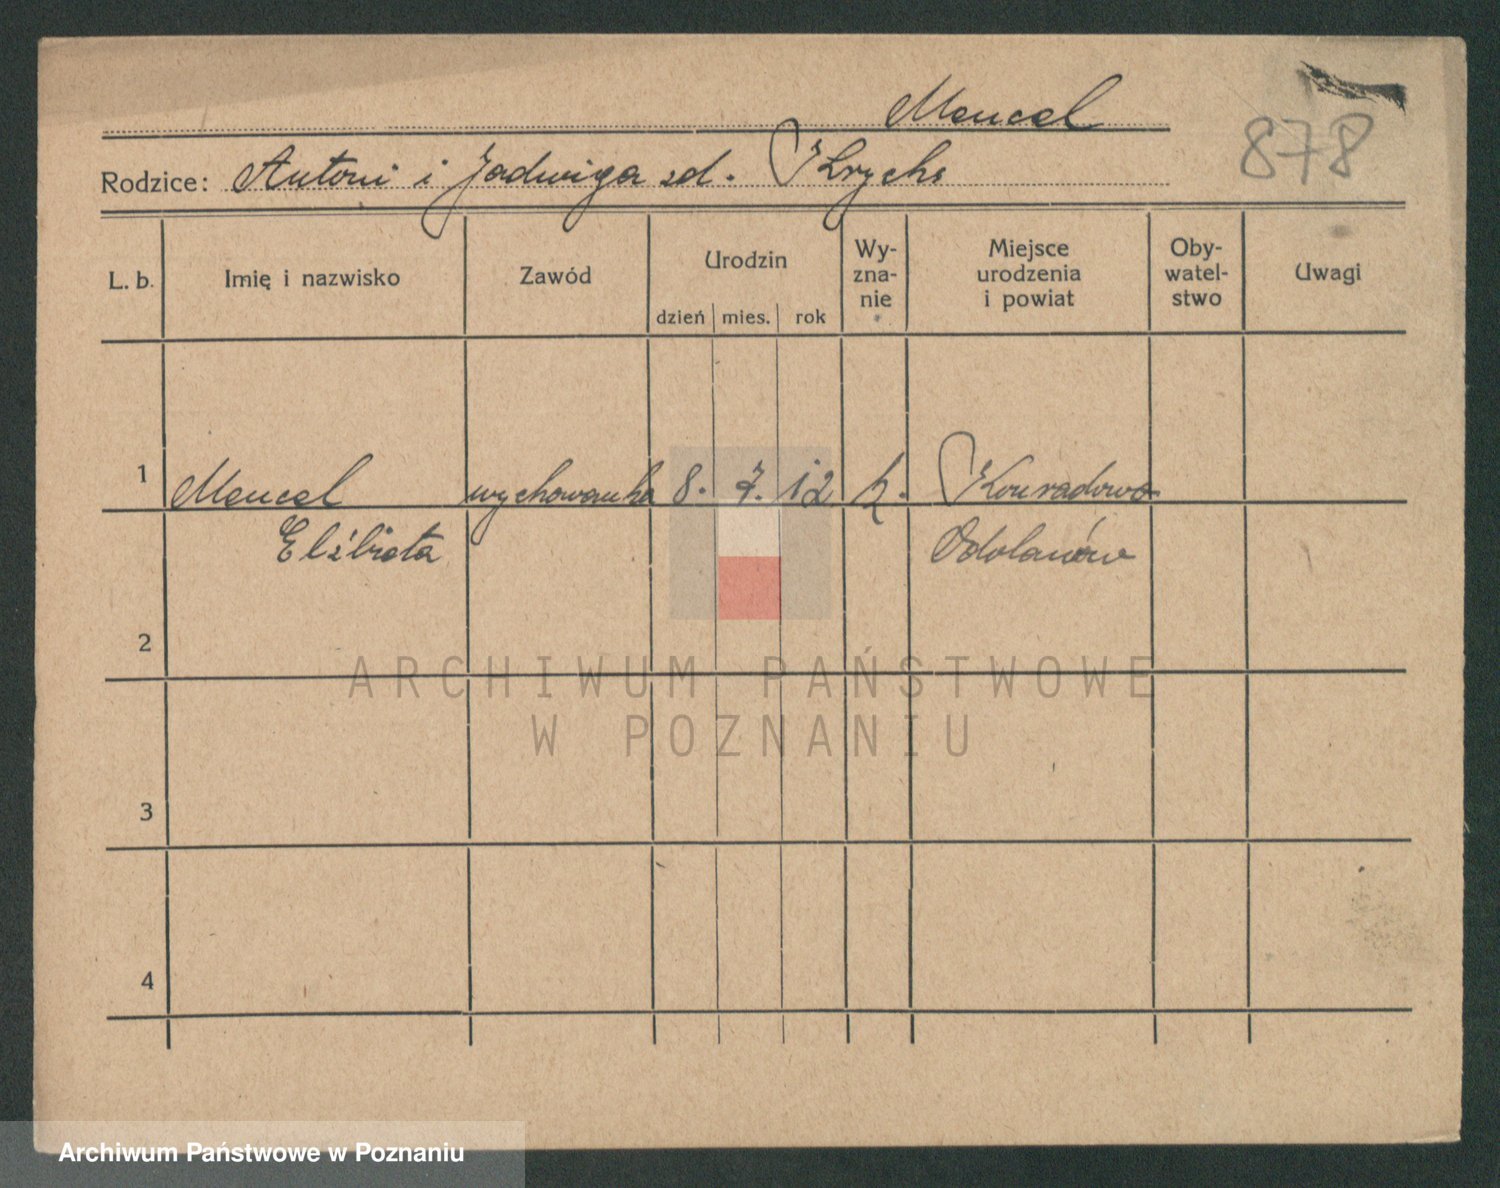 Mencel
878
Rodzice: Antoni i Jadwiga zd. Krychs
L. b. Imię i nazwisko Zawód Urodzin Wy-zna-nie Miejsce urodzenia i powiat Oby-watel-stwo Uwagi
dzień mies. rok
1 Mencel wychowanka 8. 7. 12 k. Konradowo
Elżbieta Odolanów
2
ARCHIWUM PAŃSTWOWE
W POZNANIU
3
4
Archiwum Państwowe w Poznaniu